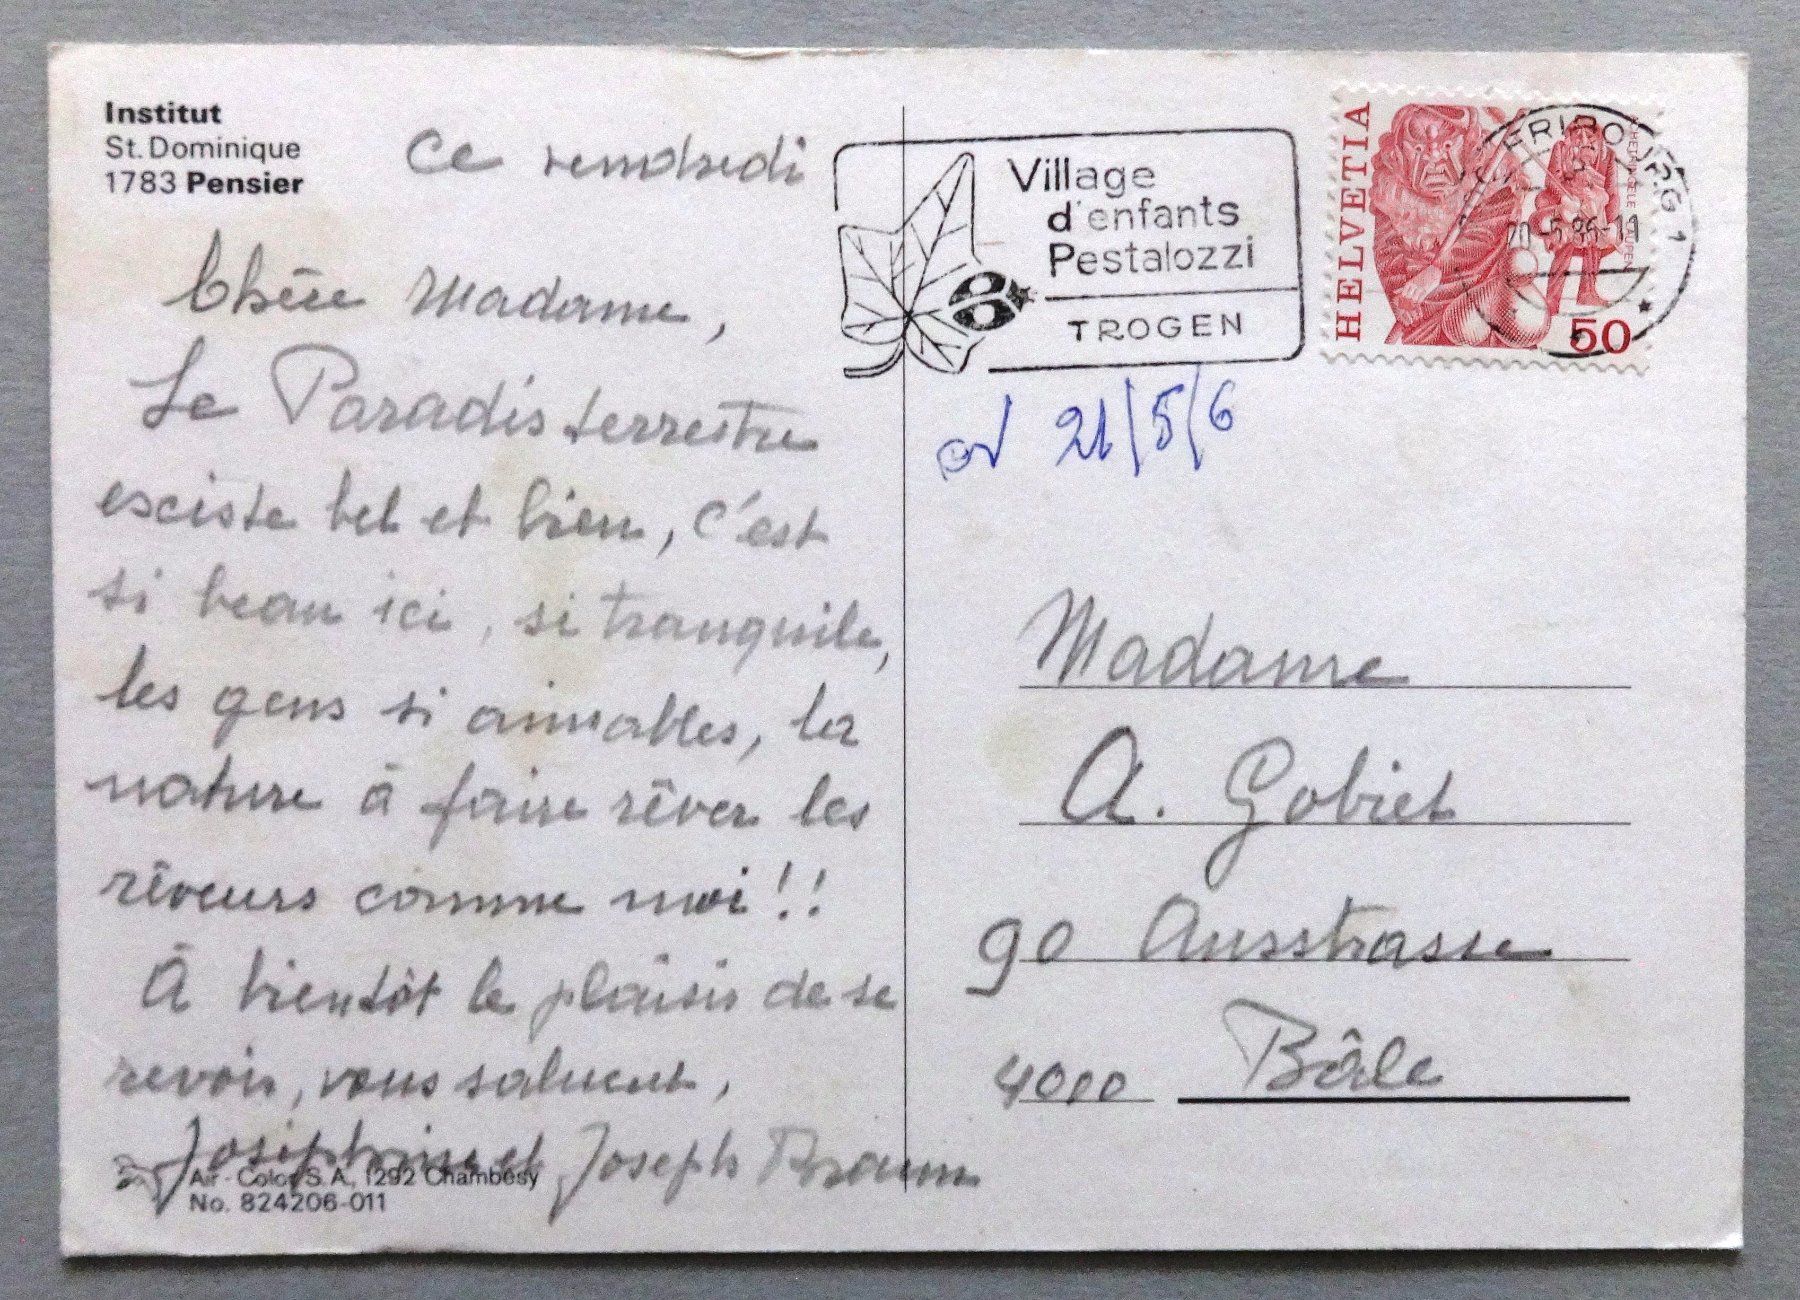 Institut
St. Dominique
1783 Pensier
Ce vendredi
Chère Madame,
Le Paradis terrestre
exciste bel et bien, c'est
si beau ici, si tranquile,
les gens si aimables, la
nature à faire rêver les
rêveurs comme moi!!
À bientôt le plaisir de se
revoir, vous saluent,
Joséphine et Joseph Braun
Air-Color S.A., 1292 Chambésy
No. 824206-011
Village
d'enfants
Pestalozzi
TROGEN
HELVETIA
50
FRIBOURG 1
20.-5.86-11
21/5/6
Madame
A. Gobiet
90 Austrasse
4000 Bâle